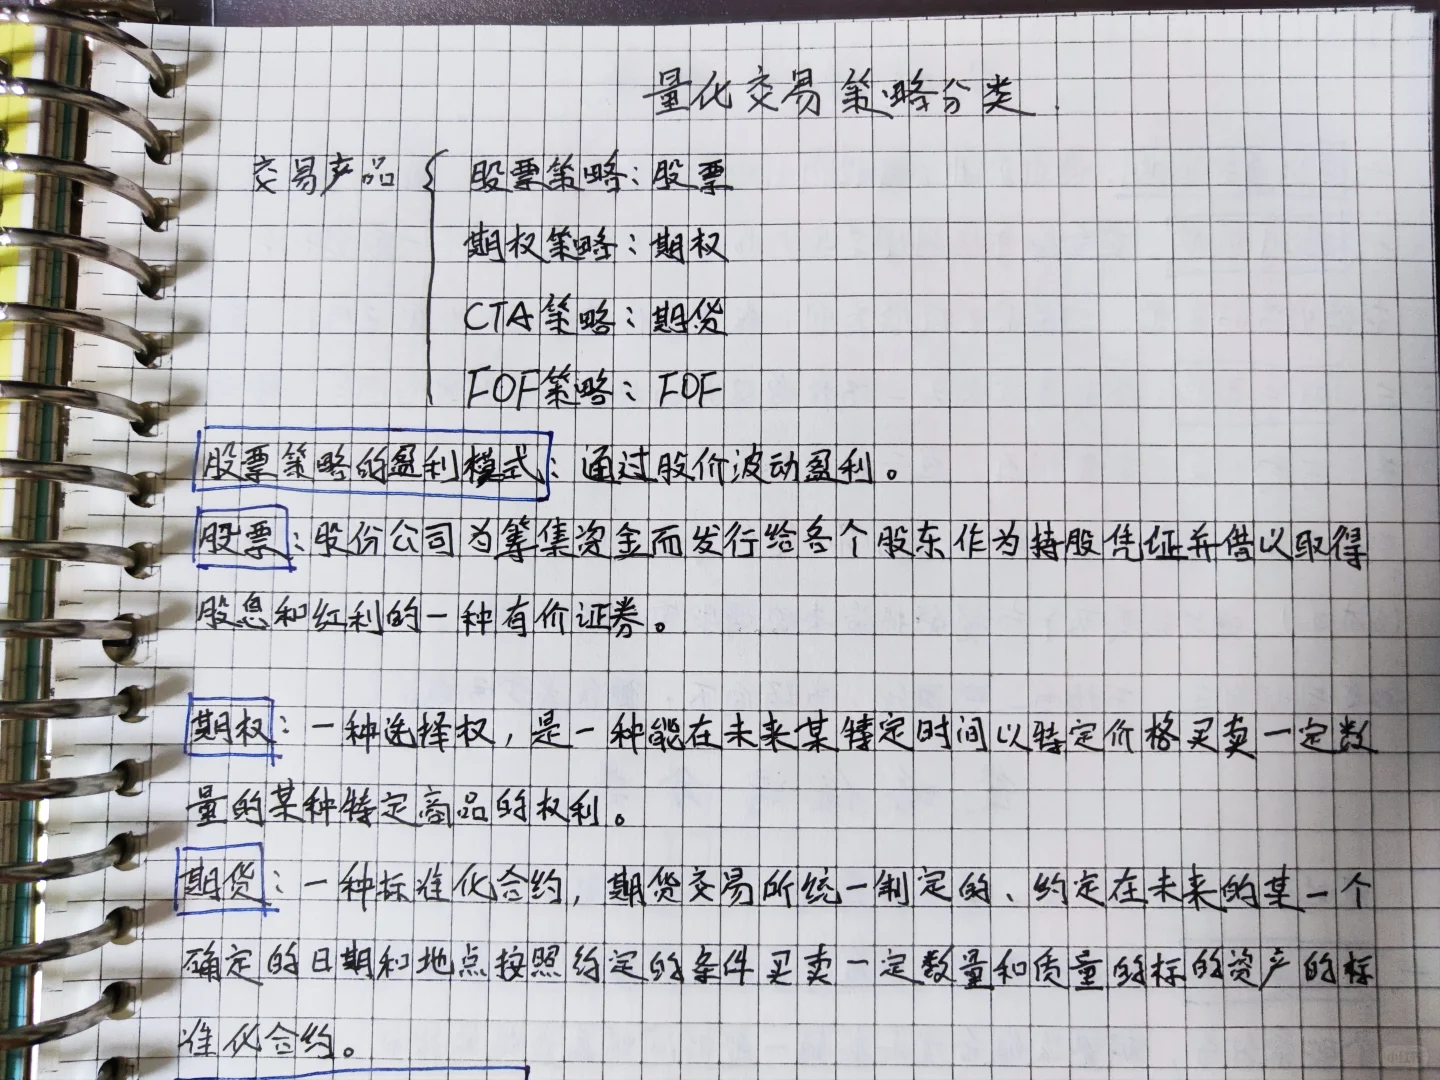 量化交易策略分类.
交易产品 { 股票策略：股票
期权策略：期权
CTA策略：期货
FOF策略：FOF
股票策略的盈利模式：通过股价波动盈利。
股票：股份公司为筹集资金而发行给各个股东作为持股凭证并借以取得
股息和红利的一种有价证券。
期权：一种选择权，是一种能在未来某特定时间以特定价格买卖一定数
量的某种特定商品的权利。
期货：一种标准化合约，期货交易所统一制定的、约定在未来的某一个
确定的日期和地点按照约定的条件买卖一定数量和质量的标的资产的标
准化合约。